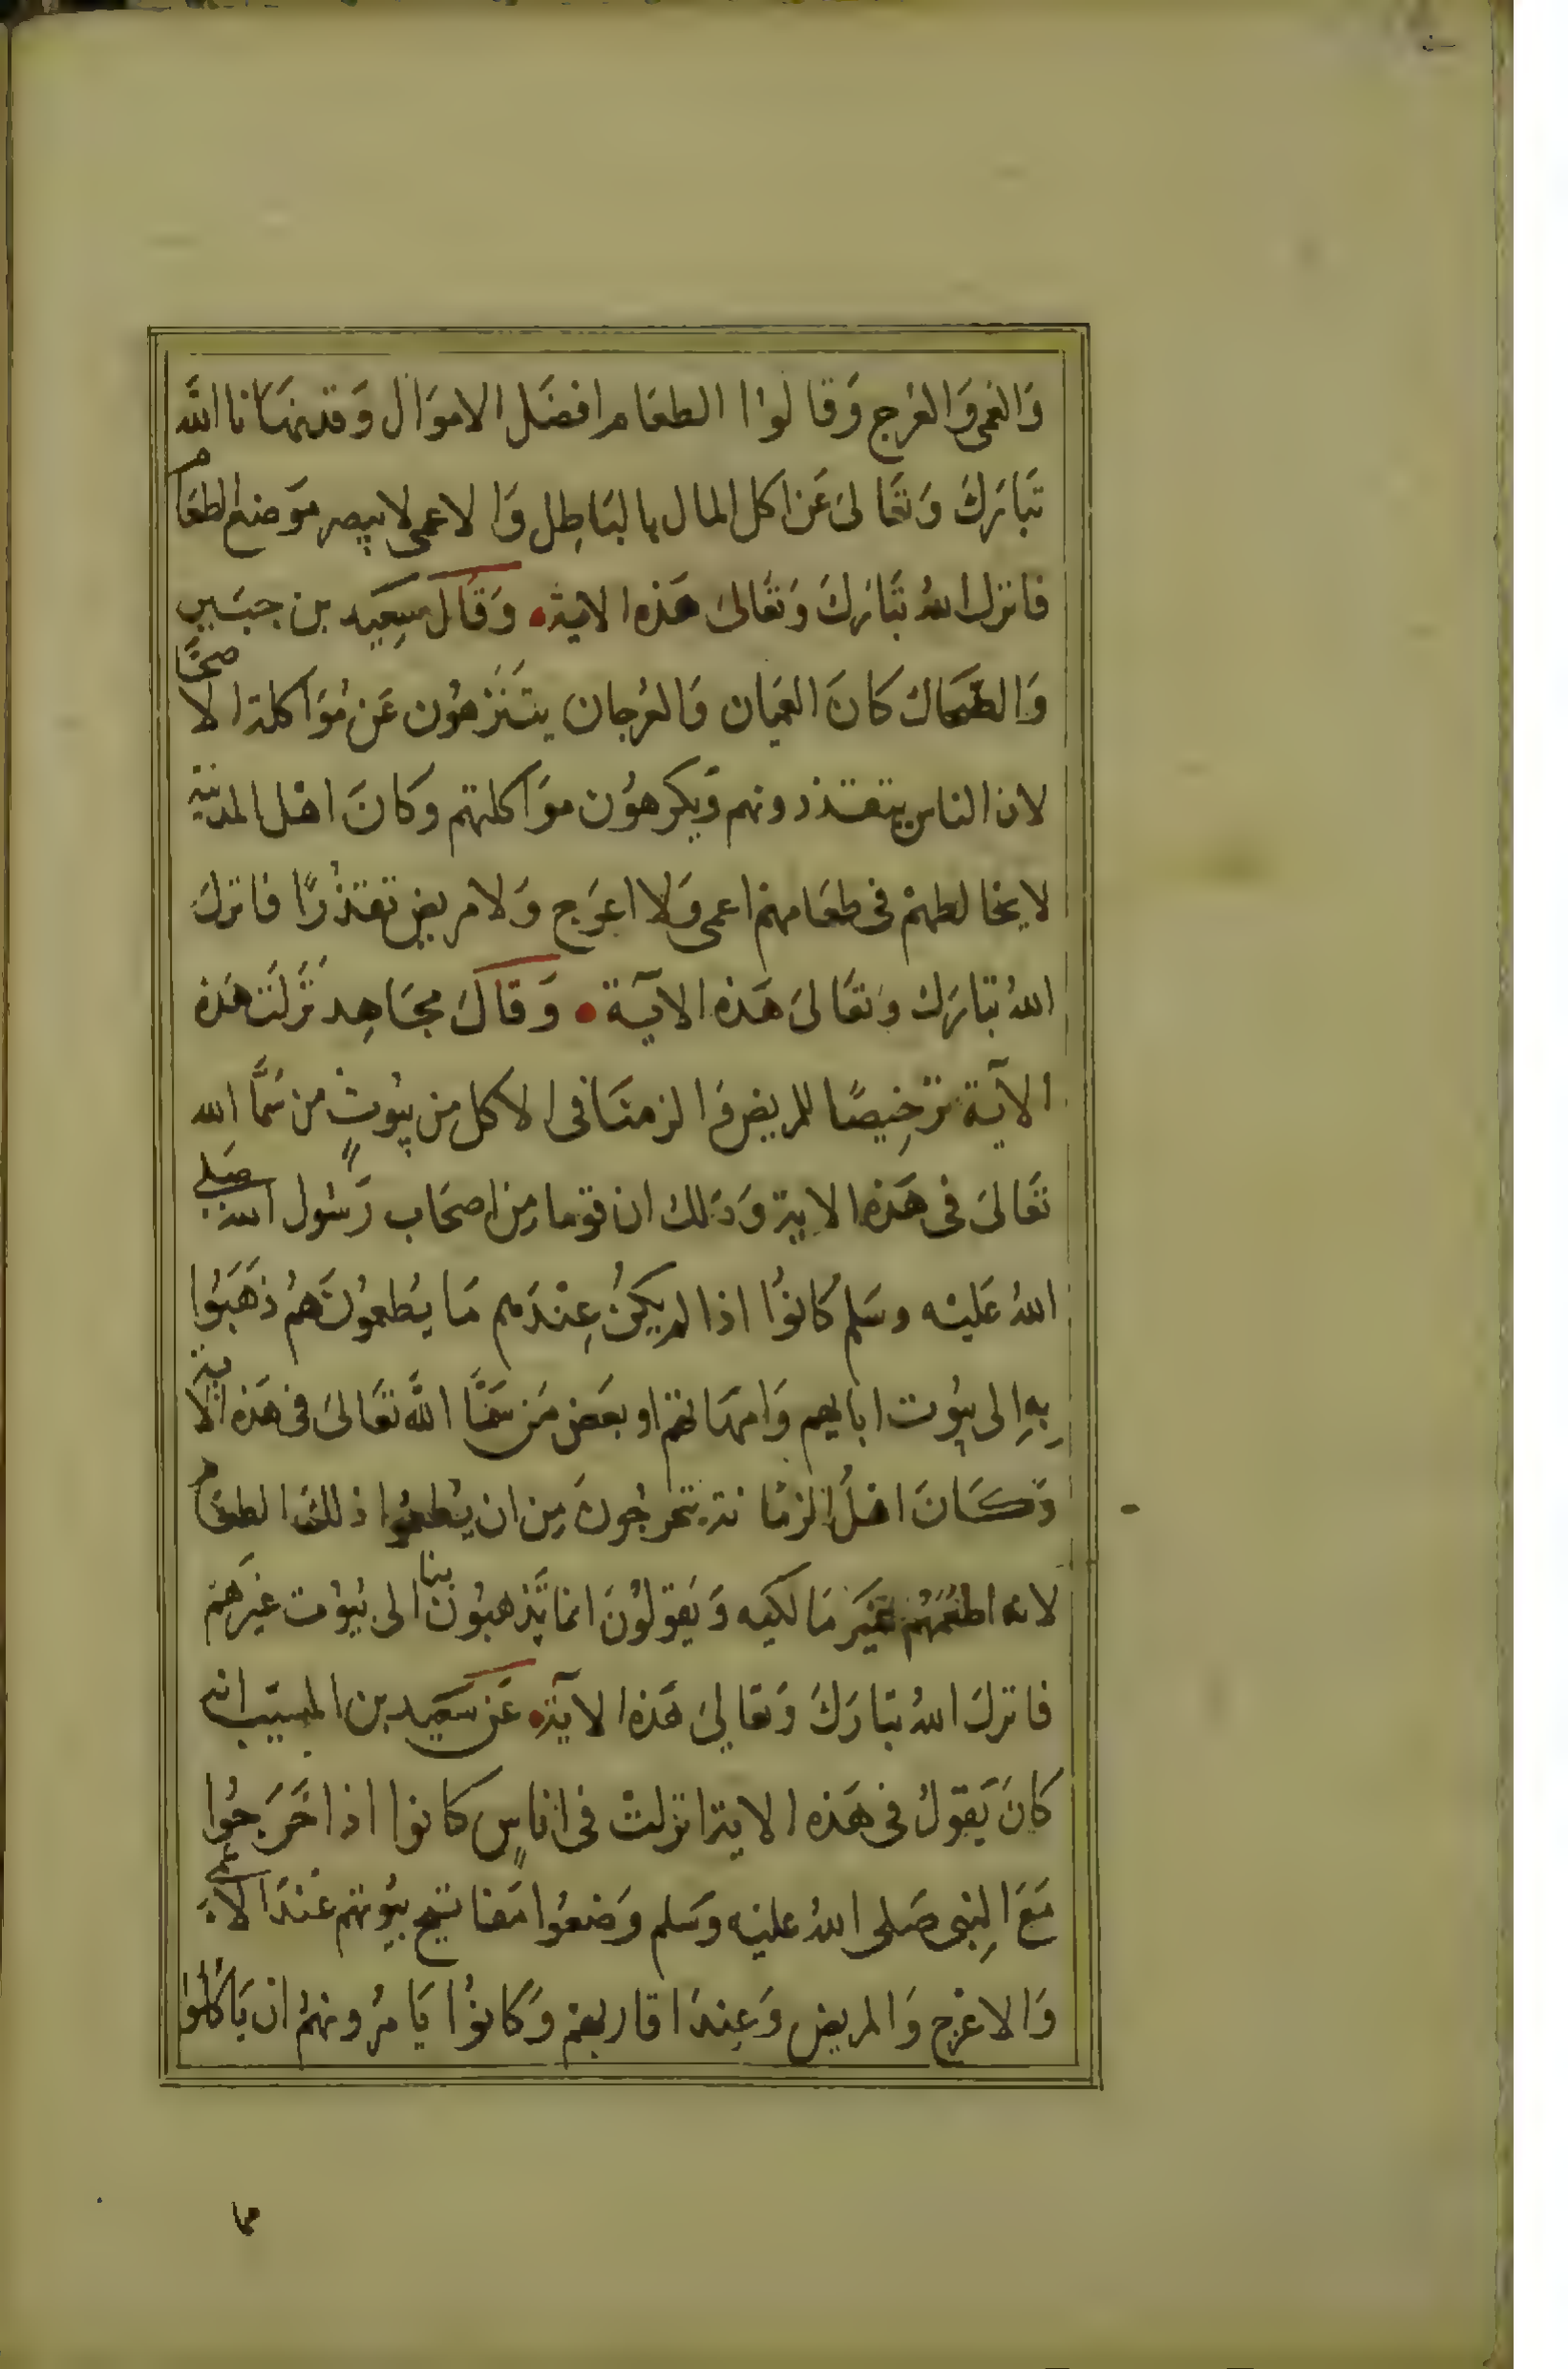 وَالعمى وَالعُرج وَقالوُا الطعَام افضَل الاموَال وَقد نهَانا اللَّه
تبَارَكَ وَتعَالىَ عَن اكل المال بالبَاطِل وَالاعمى لايبصر مَوضع الطعَام
فانزل اللهُ تبَارَكَ وَتعَالىَ هَذه الاية وَقَالَ سعِيد بن جبَير
وَالضحاك كانَ العميَان وَالعُرجان يتَنَزهُون عَن مُؤاكلة الاصحَّا
لان الناس يتقذرونهم وَيكرهوُن موَاكلتهم وكانَ اهْل المدينة
لايخالطهمْ فى طعَامهمْ اعمى وَلا اعرَج وَلامريض تقذُرًا فانزلَ
اللهُ تبارَكَ وَتعَالىَ هَذه الآية وَقالَ مجَاهِد نَزَلَت هَذه
الآية ترْخِيصًا للمريض وَالزمنَا فى الاكل مِن بيُوتٍ من سَمَّا الله
تعَالىَ فى هَذه الاية وَذلك ان قوما مِن اصحَاب رَسُول الله صَلى
اللهُ عَليْه وسَلم كَانوُا اذا لم يكنُ عِنْدَهم مَا يُطعموُنَهمُ ذهَبَوُا
بِهِ الى بيُوت ابايهم وَامهَاتهم او بعَض مَن سَمَّا اللَّه تعَالىَ فى هَذه الاية
وَكَانَ اهْلُ الزمَانة يتحرجُونَ مِن ان يُطعموُا ذلكَ الطعَام
لانه اطعَمَهُم غيَر مَالكيه وَيَقولوُنَ انما يَذهبوُن بنا الى بُيوُت غيَرهمْ
فانزلَ اللهُ تبَارَكَ وَتعَالىَ هَذه الآية عَن سَعيد بن المسيّب انه
كانَ يَقولُ فى هَذه الاية انزلتْ فى اناسٍ كانوا اذا خَرَجُوا
مَعَ النِبى صَلى اللهُ عليْه وَسَلم وَضعوُا مَفاتيح بيُوتهم عنْدَ الاعمى
وَالاعْرج وَالمريض وَعِندَ اقاربهم وَكانوُا يَامرُونهمُ ان يَاكلوُا
مما